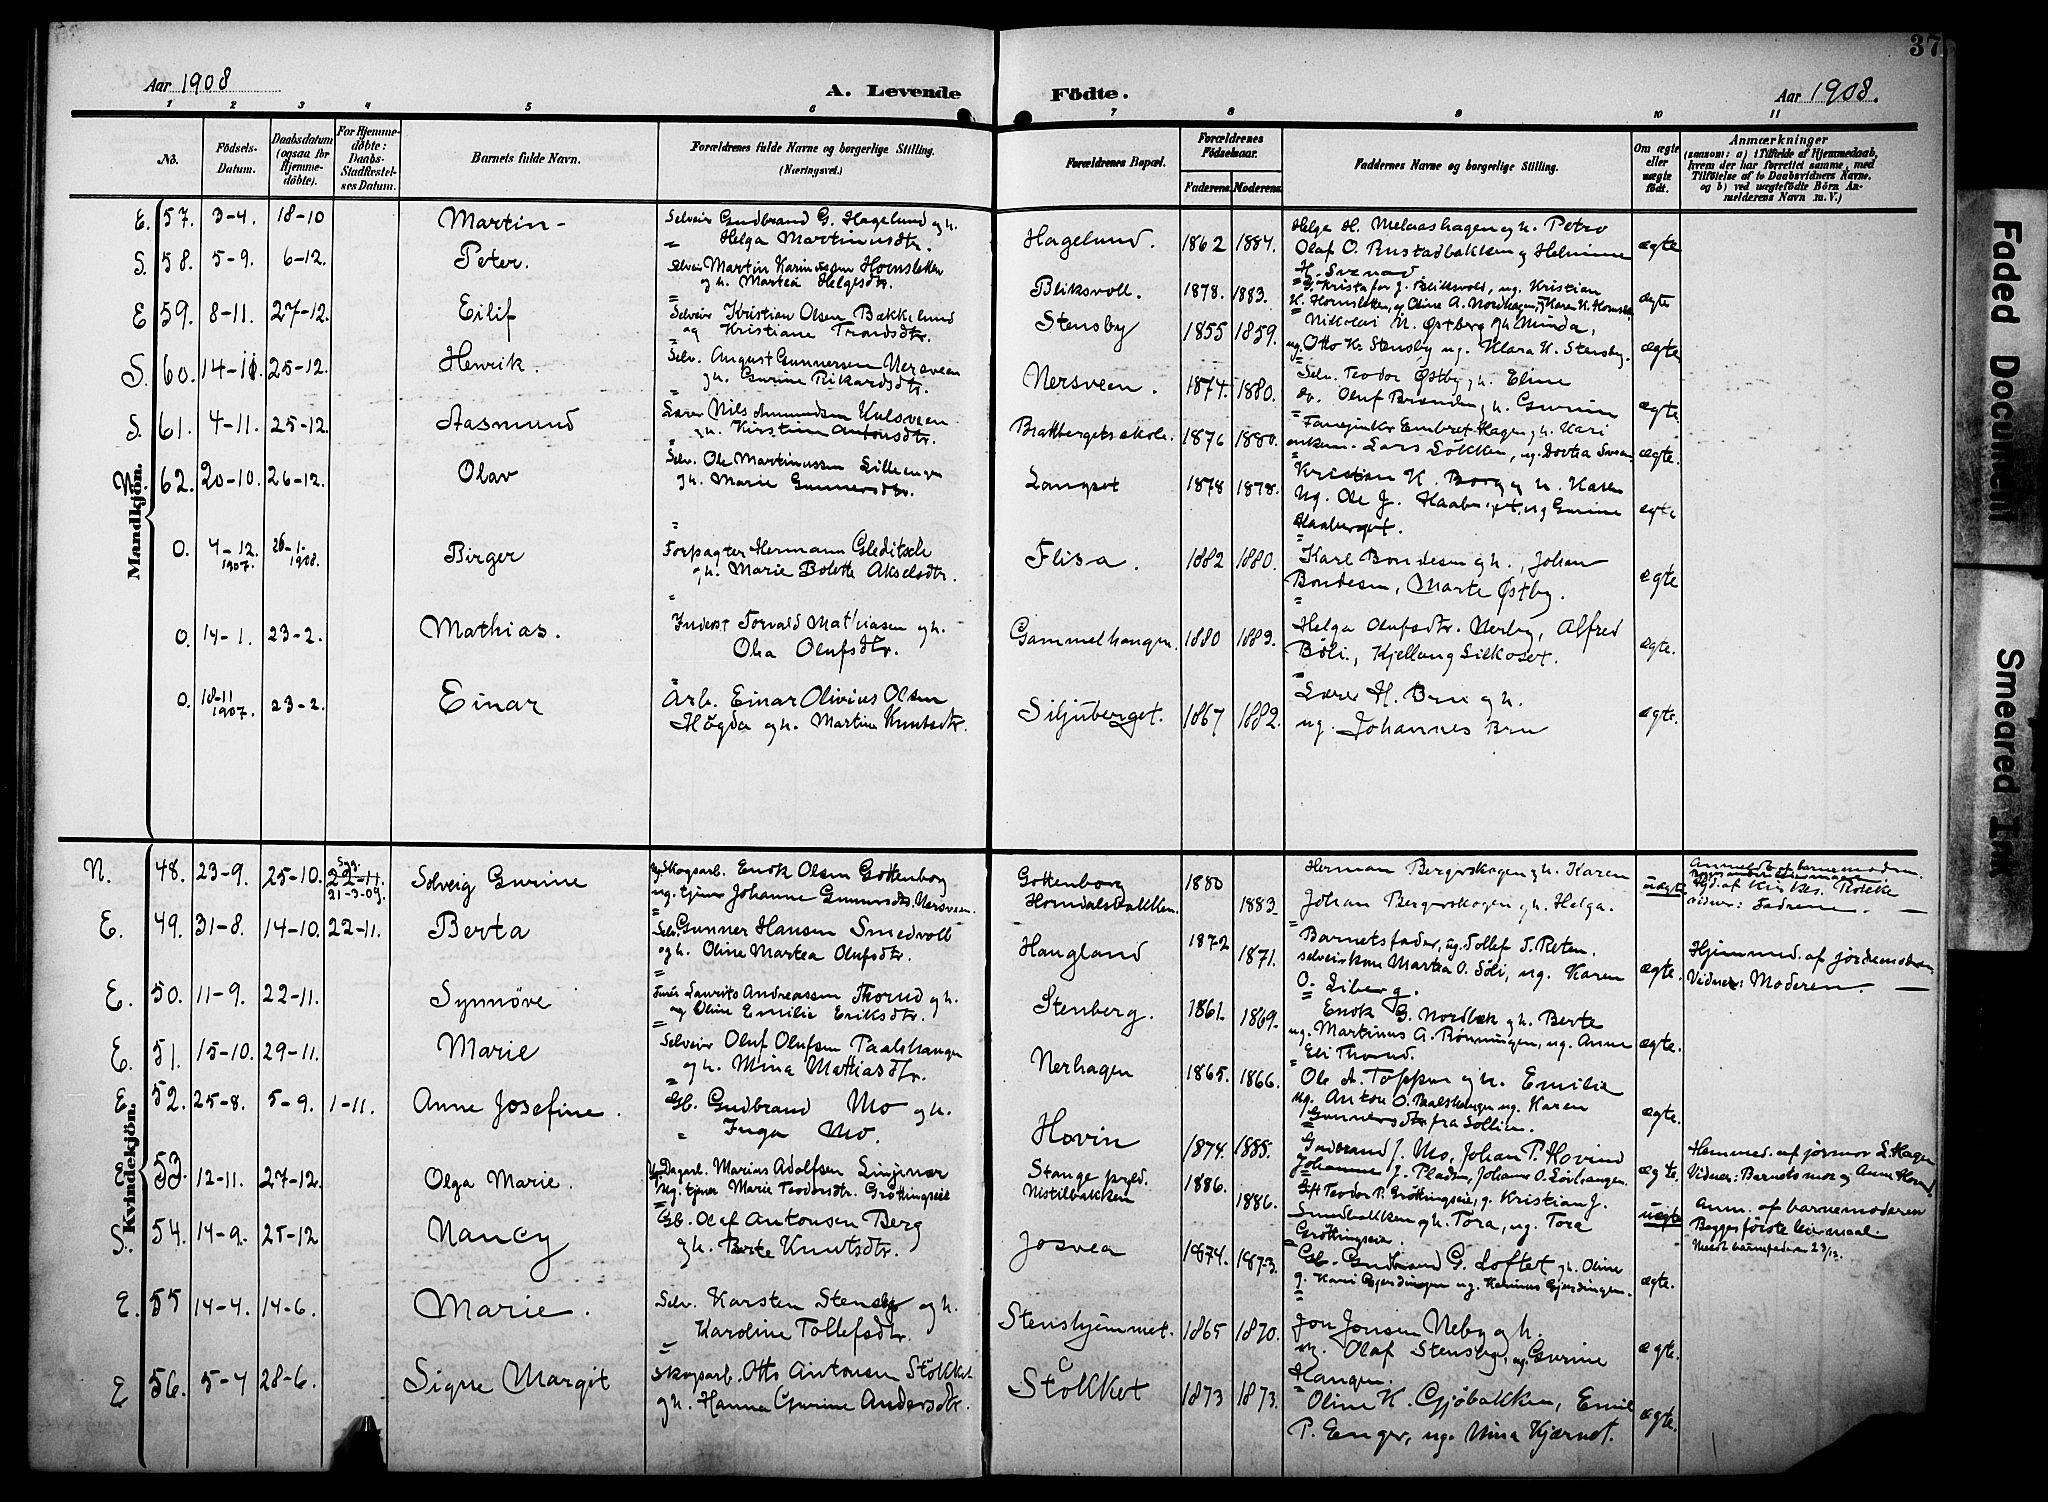 37
Aar 1908
A. Levende Födte.
Aar 1908.
1 2 3 4 5 6 7 8 9 10 11
No.
Födsels-Datum.
Daabsdatum (ogsaa for Hjemme-döbte).
For Hjemme-döbte: Daabs-Stadfæstel-ses Datum.
Barnets fulde Navn.
Forældrenes fulde Navne og borgerlige Stilling.
(Næringsvei.)
Forældrenes Bopæl.
Forældrenes Födselsaar.
Faderens. Moderens.
Faddernes Navne og borgerlige Stilling.
Om ægte eller uægte födt.
Anmærkninger
(saasom: a) i Tilfælde af Hjemmedaab,
hvem der har forrettet samme, med
Tilföielse af to Daabsvidners Navne,
og b) ved uægtefödte Börn An-
melderens Navn m. V.)
Mandkjön.
E. 57. 3-4. 18-10 Martin- Selveier Gudbrand G. Hagelund og h.
Helga Martinusdtr. Hagelund. 1862 1884. Helge H. Melaashagen og h. Petro
Olaf O. Rustadbakken og Helmine ægte
S. 58. 5-9. 6-12. Peter. Selveier Martin Karinussen Hornsletten
og h. Martea Helgesdtr. Bliksvoll. 1878. 1883. Kristafor J. Bliksvold, ug. Kristian
K. Hornsletten, og Oline A. Nordhagen, ægte
E 59. 8-11. 27-12. Eilif Selveier Kristian Olsen Bækkelund
og Kristiane Trondsdtr. Stensby 1855 1859. Nikolai N. Østberg og h. Minda,
ug. Otto K. Stensby ug. Klara K. Stensby. ægte
S. 60. 14-11. 25-12. Henrik. Selv. August Gunnersen Nersveen
og h. Gurine Rikardsdtr. Nersveen. 1874. 1880. Selv. Teodor Østby og h. Eline
Oluf Brænden og h. Gurine ægte
S. 61. 4-11. 25-12. Aasmund Lærer Nils Amundsen Kulsveen
og h. Kirstine Antonsdtr. Brattbergets skole. 1876 1880. Embret Hagen og h. Kari
Lars Løkken, ug. Dortea ægte.
N. 62. 20-10. 26-12. Olav Selv. Ole Martinussen Lilleenger
og h. Marie Gunnersdtr. Langset 1878 1878. Kristian K. Borg og h. Karen
Ug. Ole J. Haaberget, ug Gurine
Haaberget. ægte
0. 4-12. 1907. 26-1. 1908. Birger Forpagter Hermann Gleditsch
og h. Marie Bolette Akselsdtr. Flisa. 1882 1880. Karl Bondesen og h., Johan
Bondesen, Marte Østby. ægte
0. 14-1. 23-2. Mathias. Inderst Torvald Mathiasen og h.
Olia Olufsdtr. Gammelhaugen. 1880 1883. Helga Olufsdtr. Nerby, Alfred
Bøli., Kjellaug Silkoset. ægte.
0. 18-11 1907. 23-2. Einar Arb. Einar Olivius Olsen
Høgda og h. Martine Knutsdtr. Siljuberget. 1867 1882. Lærer H. Bru og h.
ug. Johannes Bru ægte.
Kvindekjön.
N. 48. 23-9. 25-10. 22-11. 21-3-09. Solveig Gurine Skogsarb. Enok Olsen Gottenborg
ug. tjener Johanne Gunnersdtr. Nersveen. Gottenborg
Horndalsbakken. 1880 1883 Herman Bergerskogen og h. Karen
Johan Bergerskogen og h. Helga. uægte Anmeldt af barnemoderen.
E. 49. 31-8. 14-10. 22-11. Berta Selv. Gunner Hansen Smedvoll
og h. Oline Martea Olufsdtr. Haugland 1872 1871. Barnets fader, ug. Tollef T. Reten.
selveierkone Martea O. Søli, ug. Karen
O. Liberg. ægte. Hjemmed. af jordemoderen
Vidner: Moderen. —
E. 50. 11-9. 22-11. Synnöve Laurits Andreassen Thorud og h.
og Oline Emilie Eriksdtr. Stenberg. 1861. 1869. Enok G. Nordbæk og h. Berte
ug. Martinus A. Rønningen, ug. Anne
Eli Thorud. ægte.
E. 51. 15-10. 29-11. Marie Selveier Oluf Olufsen Paalshaugen
og h. Mina Mathiasdtr. Nerhagen 1865. 1866. Ole A. Toppen og h. Emilie
ug. Anton O. Paalshaugen ug. Karen
Gunnersdtr fra Sollien. ægte.
E. 52. 25-8. 5-9. 1-11. Anne Josefine. Gb. Gudbrand Mo og h.
Inga Mo. Hovin 1874. 1885. Gudbrand J. Mo, Johan P. Hovind
Johanne J. Pladsen, Johanne O. Løvhaugen. ægte. Hemmed. af jormor L. Hagen
Vidner: Barnets mor og Anne Hovind.
E 53. 12-11. 27-12. Olga Marie. Dagarb. Marius Adolfsen Linjines
ug. tjener Marie Teodorsdtr. Gröttingseie Stange præd.
Nistilbakken 1886. 1886. Teodor P. Gröttingseie, g. Kristian J.
Smedbakken og h. Tora, ug. Tora
Gröttingseie. uægte Anm. af barnemoderen
Begges förste leiermaal
Meldt barnefaderen 23/12.
S. 54. 14-9. 25-12 Nancy Gb. Olaf Antonsen Berg
og h. Berte Knutsdtr. Josvea 1874. 1873. Gb. Gudbrand G. Loftet og h. Oline
g. Kari Gjerdingen ug. Karinus Gjerdingen. ægte.
E. 55 14-4. 14-6. Marie. Selv. Karsten Stensby og h.
Karoline Tollefsdtr. Stenshjemmet. 1865 1870. Jon Jonsen Neby og h.
ug. Olaf Stensby, ug. Gurine
Haugen. ægte.
E 56. 5-4 28-6. Signe Margit Skogsarb. Otto Antonsen Stökket
og h. Hanna Gurine Andersdtr. Stökket 1873 1873. Oline K. Gjöbakken, Emil
P. Enger, ug. Mina Kjærnet. ægte.
Faded Document
Smeared Ink